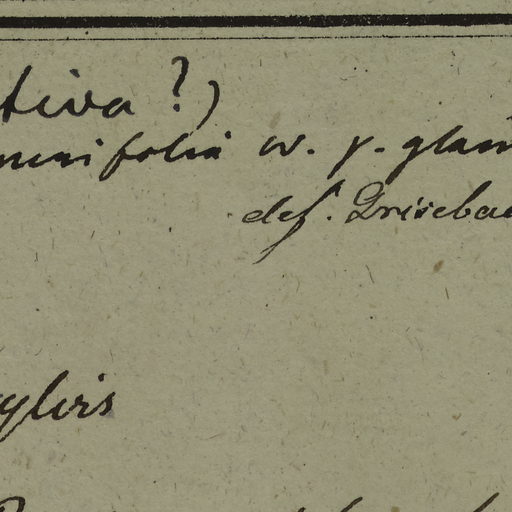 tiva?)
nunifolia w. γ. glam
def. Grisebac
ylvis